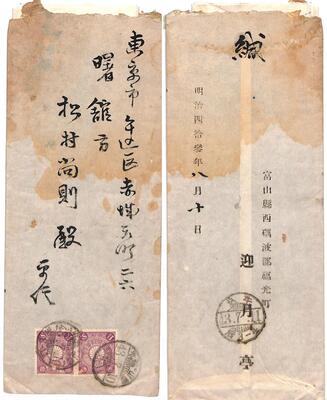 東京市牛込区赤城元町二六
曙舘方
松村尚則殿
平信
緘
明治四拾參年八月十日
富山縣西礪波郡福光町
迎月亭